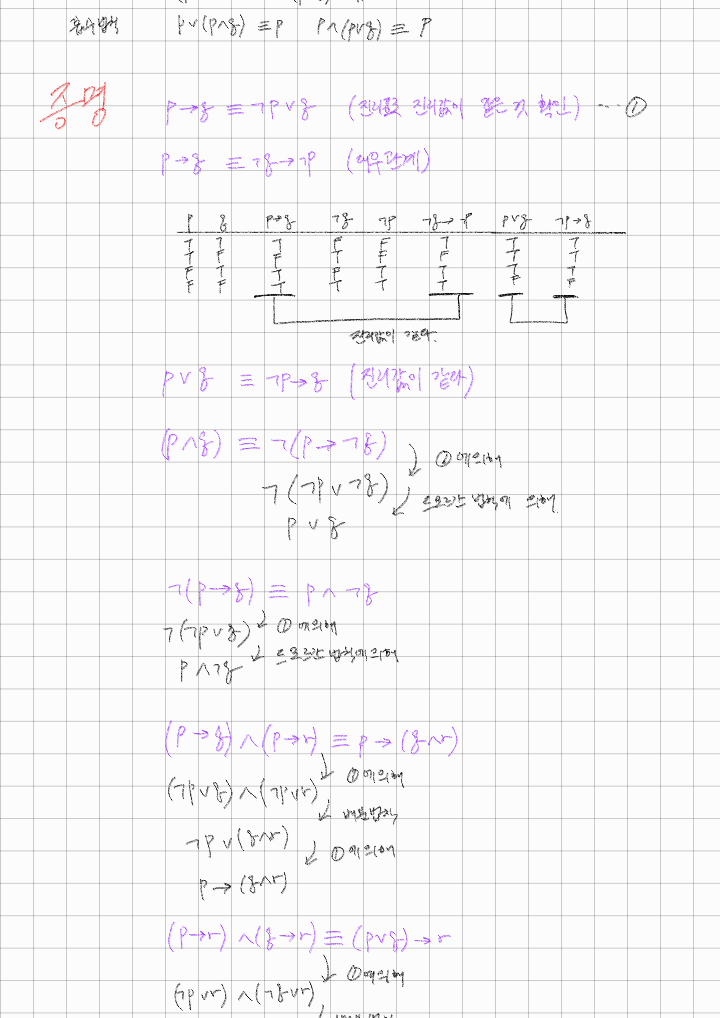 흡수법칙 p∨(p∧q) ≡ p p∧(p∨q) ≡ p
증명
p→q ≡ ¬p∨q (진리표로 진리값이 같은 것 확인) ... ①
p→q ≡ ¬q→¬p (대우관계)
p q p→q ¬q ¬p ¬q→¬p p∨q ¬p→q
T T T F F T T T
T F F T F F T T
F T T F T T T T
F F T T T T F F
진리값이 같다.
p∨q ≡ ¬p→q (진리값이 같다)
(p∧q) ≡ ¬(p→¬q)
① 에의해
¬(¬p∨¬q)
드모르간 법칙에 의해
p∨q
¬(p→q) ≡ p∧¬q
¬(¬p∨q) ① 에의해
p∧¬q 드모르간 법칙에의해
(p→q)∧(p→r) ≡ p→(q∧r)
① 에의해
(¬p∨q)∧(¬p∨r)
배분법칙
¬p∨(q∧r)
① 에의해
p→(q∧r)
(p→r)∧(q→r) ≡ (p∨q)→r
① 에의해
(¬p∨r)∧(¬q∨r)